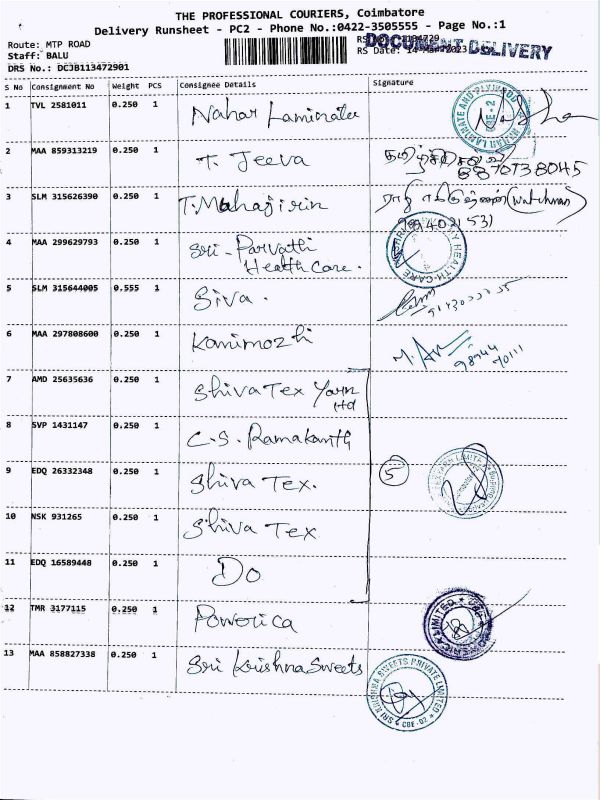 THE PROFESSIONAL COURIERS, Coimbatore
Delivery Runsheet - PC2 - Phone No.:0422-3505555 - Page No.:1
DOCUMENT DELIVERY
Route: MTP ROAD
Staff: BALU
RS Date: 14-Mar-2023
DRS No.: DCJB113472901
S No Consignment No Weight PCS Consignee Details Signature
1 TVL 2581011 0.250 1 Nahar Laminates
2 MAA 859313219 0.250 1 T. Jeeva
3 SLM 315626390 0.250 1 T.Mahajirin (watchman)
4 MAA 299629793 0.250 1 Sri - Parvathi
Health Care.
5 SLM 315644005 0.555 1 Siva.
6 MAA 297808600 0.250 1 Kanimozhi
98944
70111
7 AMD 25635636 0.250 1 Shiva Tex Yarn
Ltd
8 SVP 1431147 0.250 1 C.S. Ramakanth
9 EDQ 26332348 0.250 1 Shiva Tex. 5
10 NSK 931265 0.250 1 Shiva Tex
11 EDQ 16589448 0.250 1 Do
12 TMR 3177115 0.250 1 Powerica
13 MAA 858827338 0.250 1 Sri Krishna Sweets
SRI KRISHNA SWEETS PRIVATE LIMITED
CBE-02